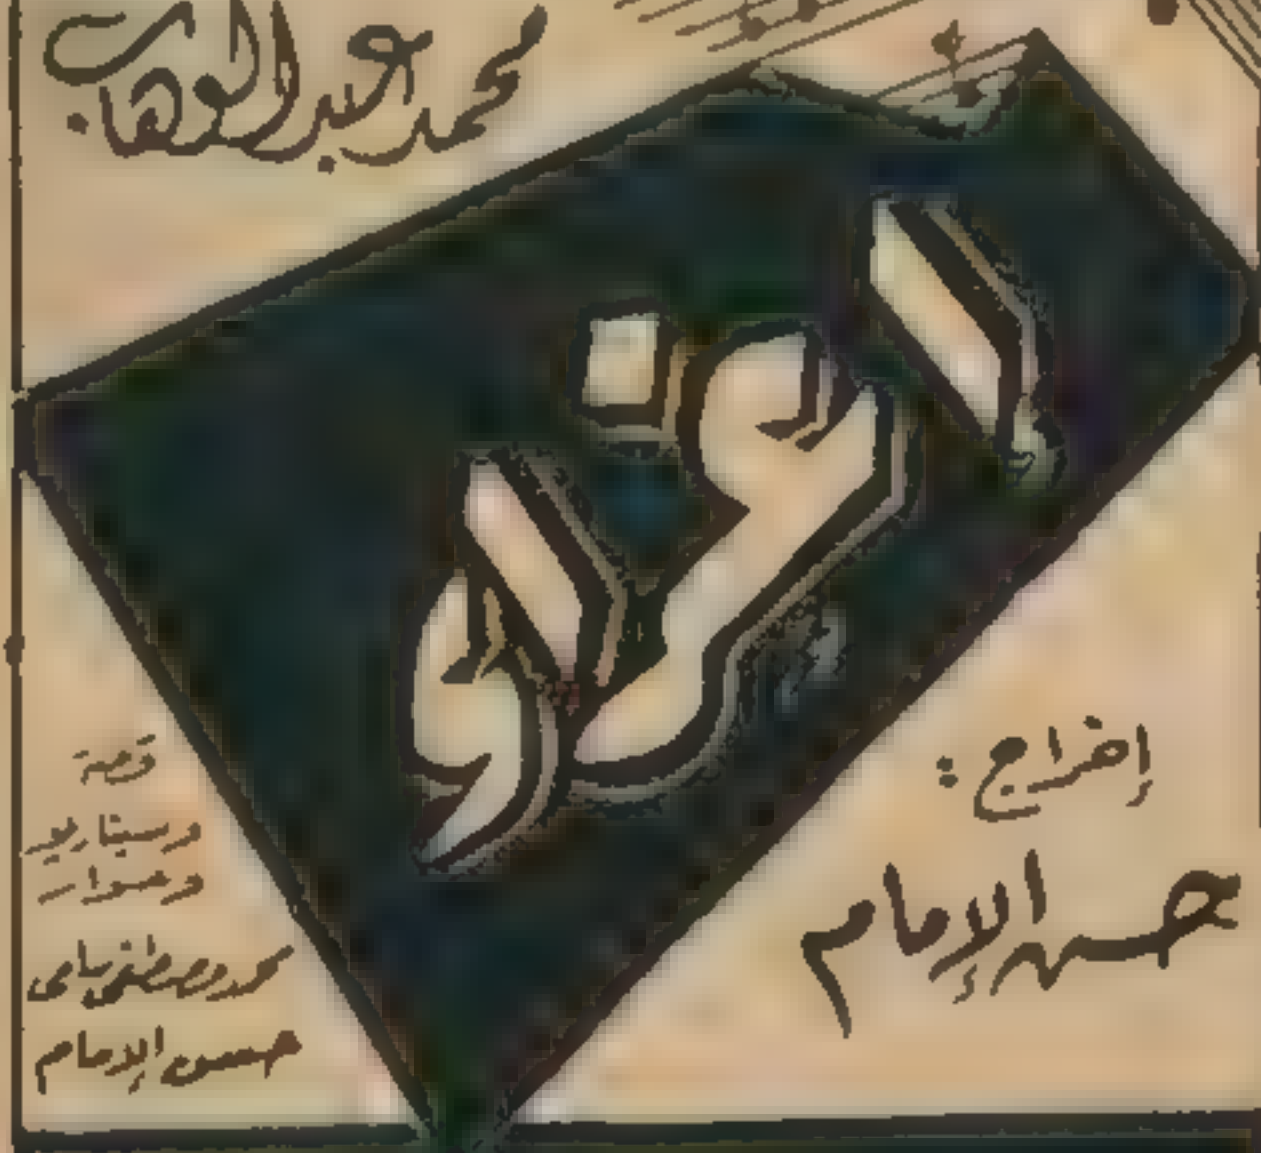 محمد عبد الوهاب
اغراء
إخراج :
حسن الإمام
قصة
وسيناريو
وحوار
محمد مصطفى سامى
حسن الإمام